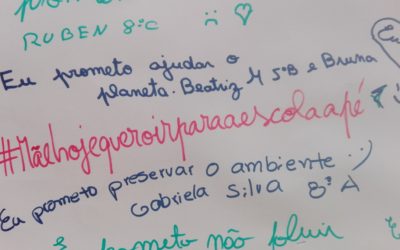 RUBEN 8ºC
Eu prometo ajudar o
planeta. Beatriz M 5ºB e Bruna
Eu
#Mãehojequeroirparaaescolaapé
Eu prometo preservar o ambiente :)
Gabriela Silva 8º A
prometo não poluir